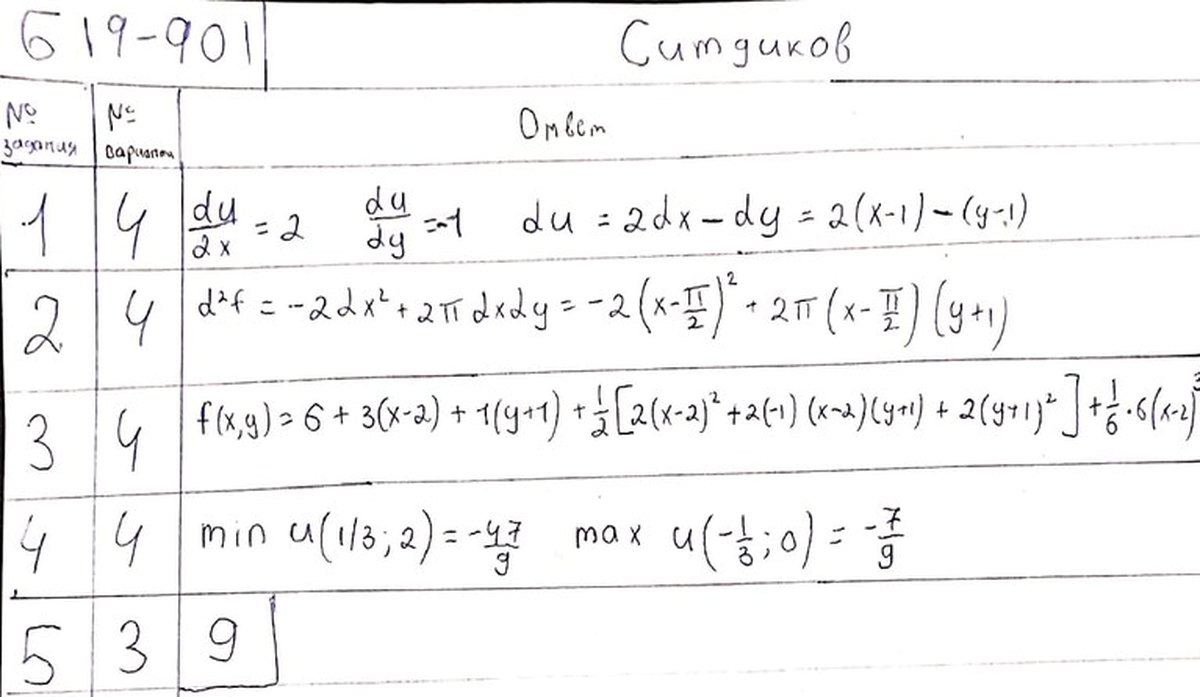 Б19-901 Ситдиков
№ задания № варианта Ответ
1 4 du/2x = 2 du/dy = -1 du = 2dx - dy = 2(x-1) - (y-1)
2 4 d²f = -2dx² + 2π dxdy = -2(x-π/2)² + 2π(x-π/2)(y+1)
3 4 f(x,y) = 6 + 3(x-2) + 1(y+1) + 1/2[2(x-2)² + 2(-1)(x-2)(y+1) + 2(y+1)²] + 1/6·6(x-2)³
4 4 min u(1/3; 2) = -47/9 max u(-1/3; 0) = -7/9
5 3 9